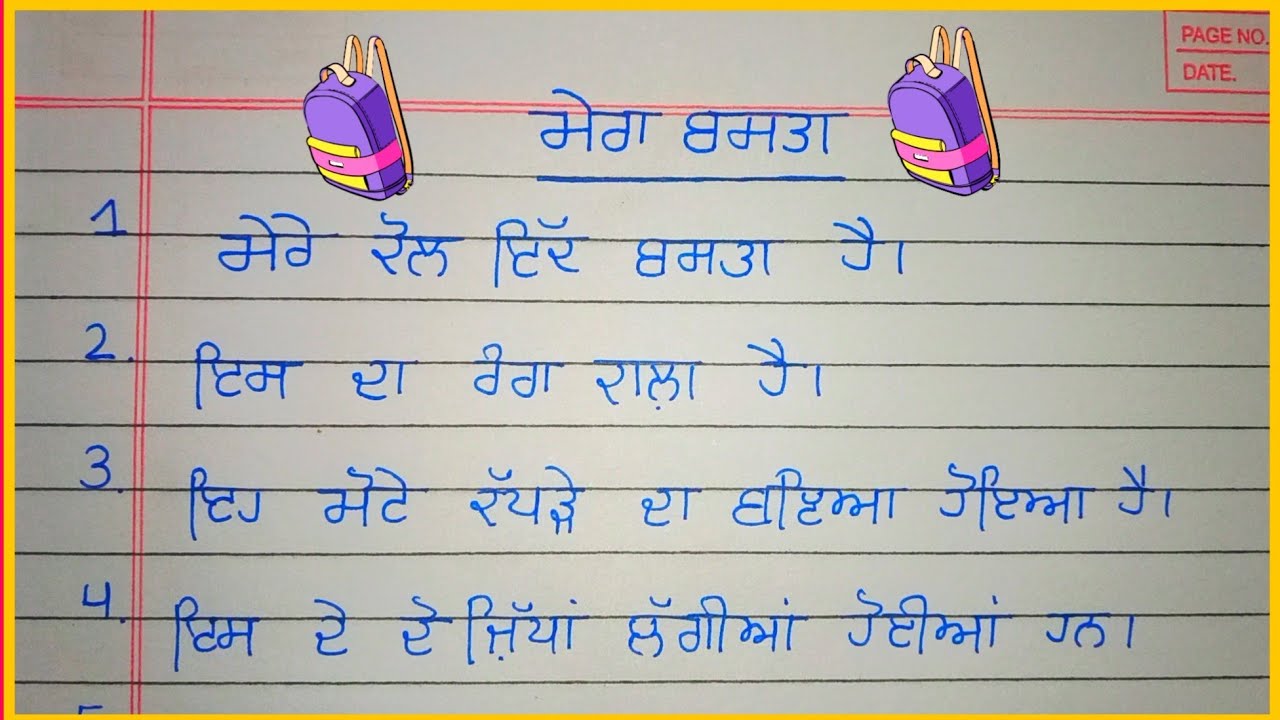 PAGE NO.
DATE.
ਮੇਰਾ ਬਸਤਾ
1 ਮੇਰੇ ਕੋਲ ਇੱਕ ਬਸਤਾ ਹੈ।
2. ਇਸ ਦਾ ਰੰਗ ਕਾਲ਼ਾ ਹੈ।
3. ਇਹ ਮੋਟੇ ਕੱਪੜੇ ਦਾ ਬਣਿਆ ਹੋਇਆ ਹੈ।
4. ਇਸ ਦੇ ਦੋ ਜ਼ਿੱਪਾਂ ਲੱਗੀਆਂ ਹੋਈਆਂ ਹਨ।